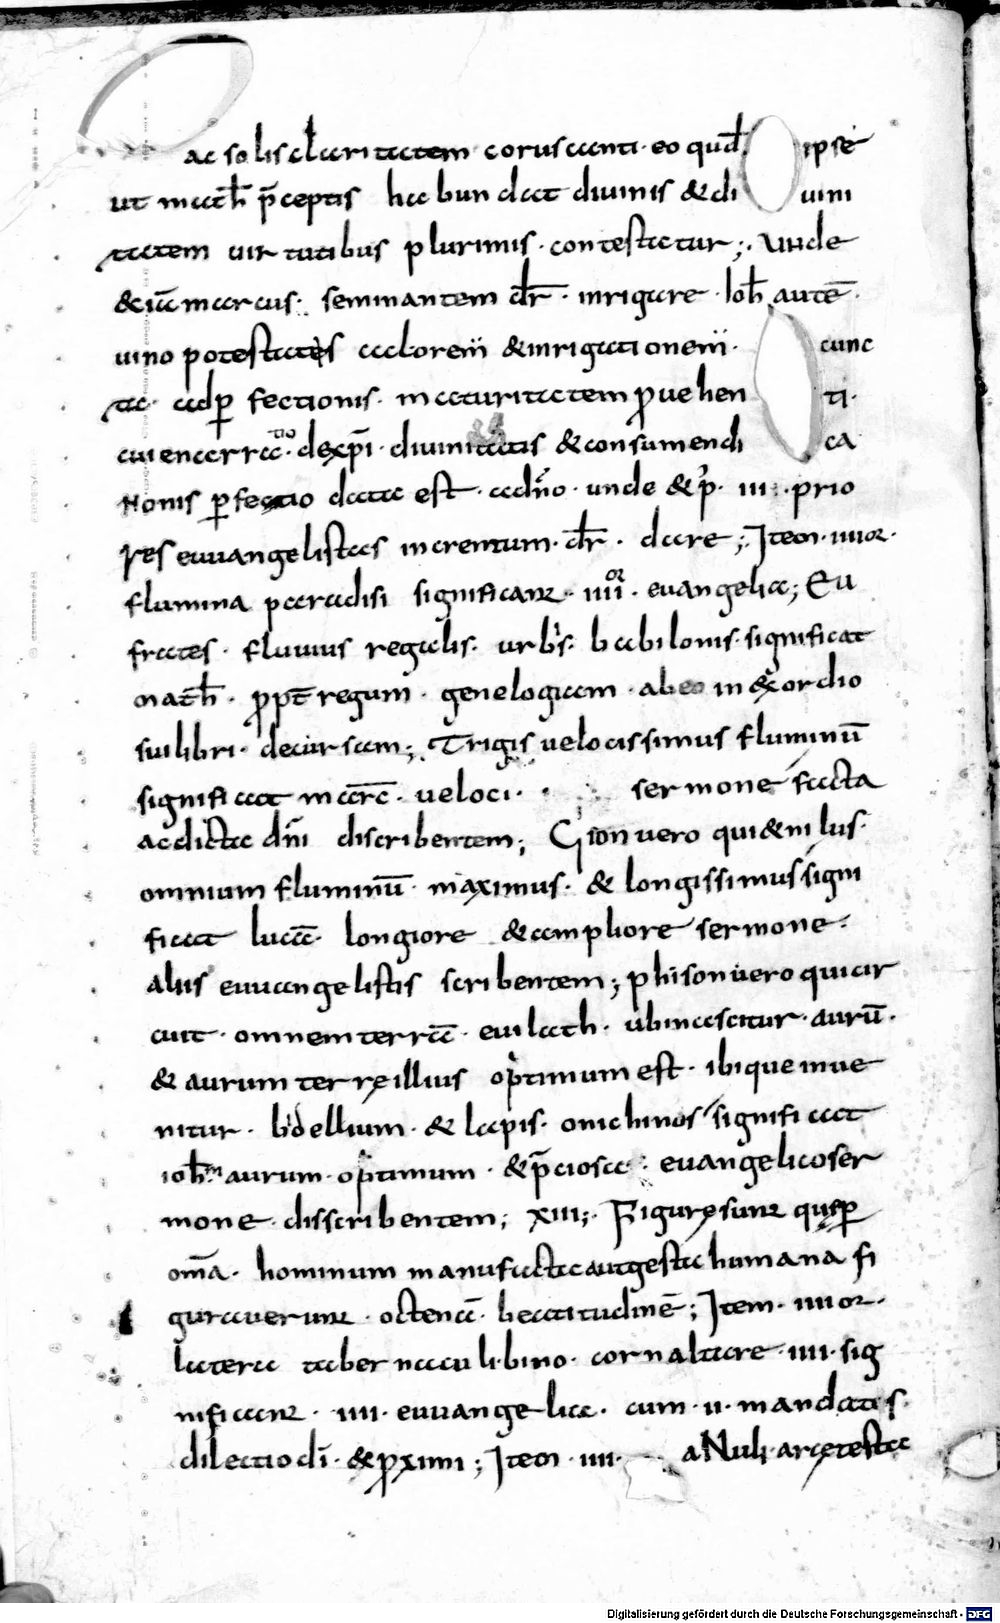 ac solis claritatem coruscanti · eo quod ipse
ut math p̄ceptis habundat diuinis & di uini
tatem uirtutibus plurimis · contestatur ;· Unde
& iā marcus · seminantem dr̄ · inrigare · Ioh̄ autē ·
uino potestates calorem & inrigationem · cunc
ta · ad ꝑfectionis · maturitatem ꝓuehen ti ·
cui enarratio · de xp̄i · diuinitatis & consumendi ca
nonis ꝑfectio data est · a dn̄o · unde & p · III · prio
res euuangelistas incrementum · dr̄ · dare ; Item · IIIIor ·
flumina paradisi significant · IIIIor · euangelia ; Eu
frates · fluuius regalis · urbis · babilonis · significat
math̄ · ꝓpt̄ regum · genelogiam · ab eo in exordio
sui libri · decursam ; Trigis uelocissimus fluminū
significat marcū · ueloci · sermone facta
ac dicta dn̄i discribentem ; Gion uero qui & nilus ·
omnium fluminū · maximus · & longissimus signi
ficat lucā · longiore & ampliore sermone ·
aliis euuangelistis scribentem ; phison uero qui cir
cuit · omnem terrā · euilath · ubi nascitur · aurū ·
& aurum terrę illius optimum est · ibique inue
nitur · bdellium · & lapis · onichinos significat
ioh̄m aurum · optimum · & p̄ciosa · euangelico ser
mone · disscribentem ; XIII ;· Figurę sunt quę ꝑ
om̄a · hominum manu facta aut gesta humana fi
gurauerunt · octenā · beatitudinē ; Item · IIIIor ·
latera tabernaculi · bino · corn altare · IIII · sig
nificant · IIII · euuangelia · cum · II · mandatis ·
dilectio dī · & ꝓximi ; Item · IIII · anuli · arcę testa